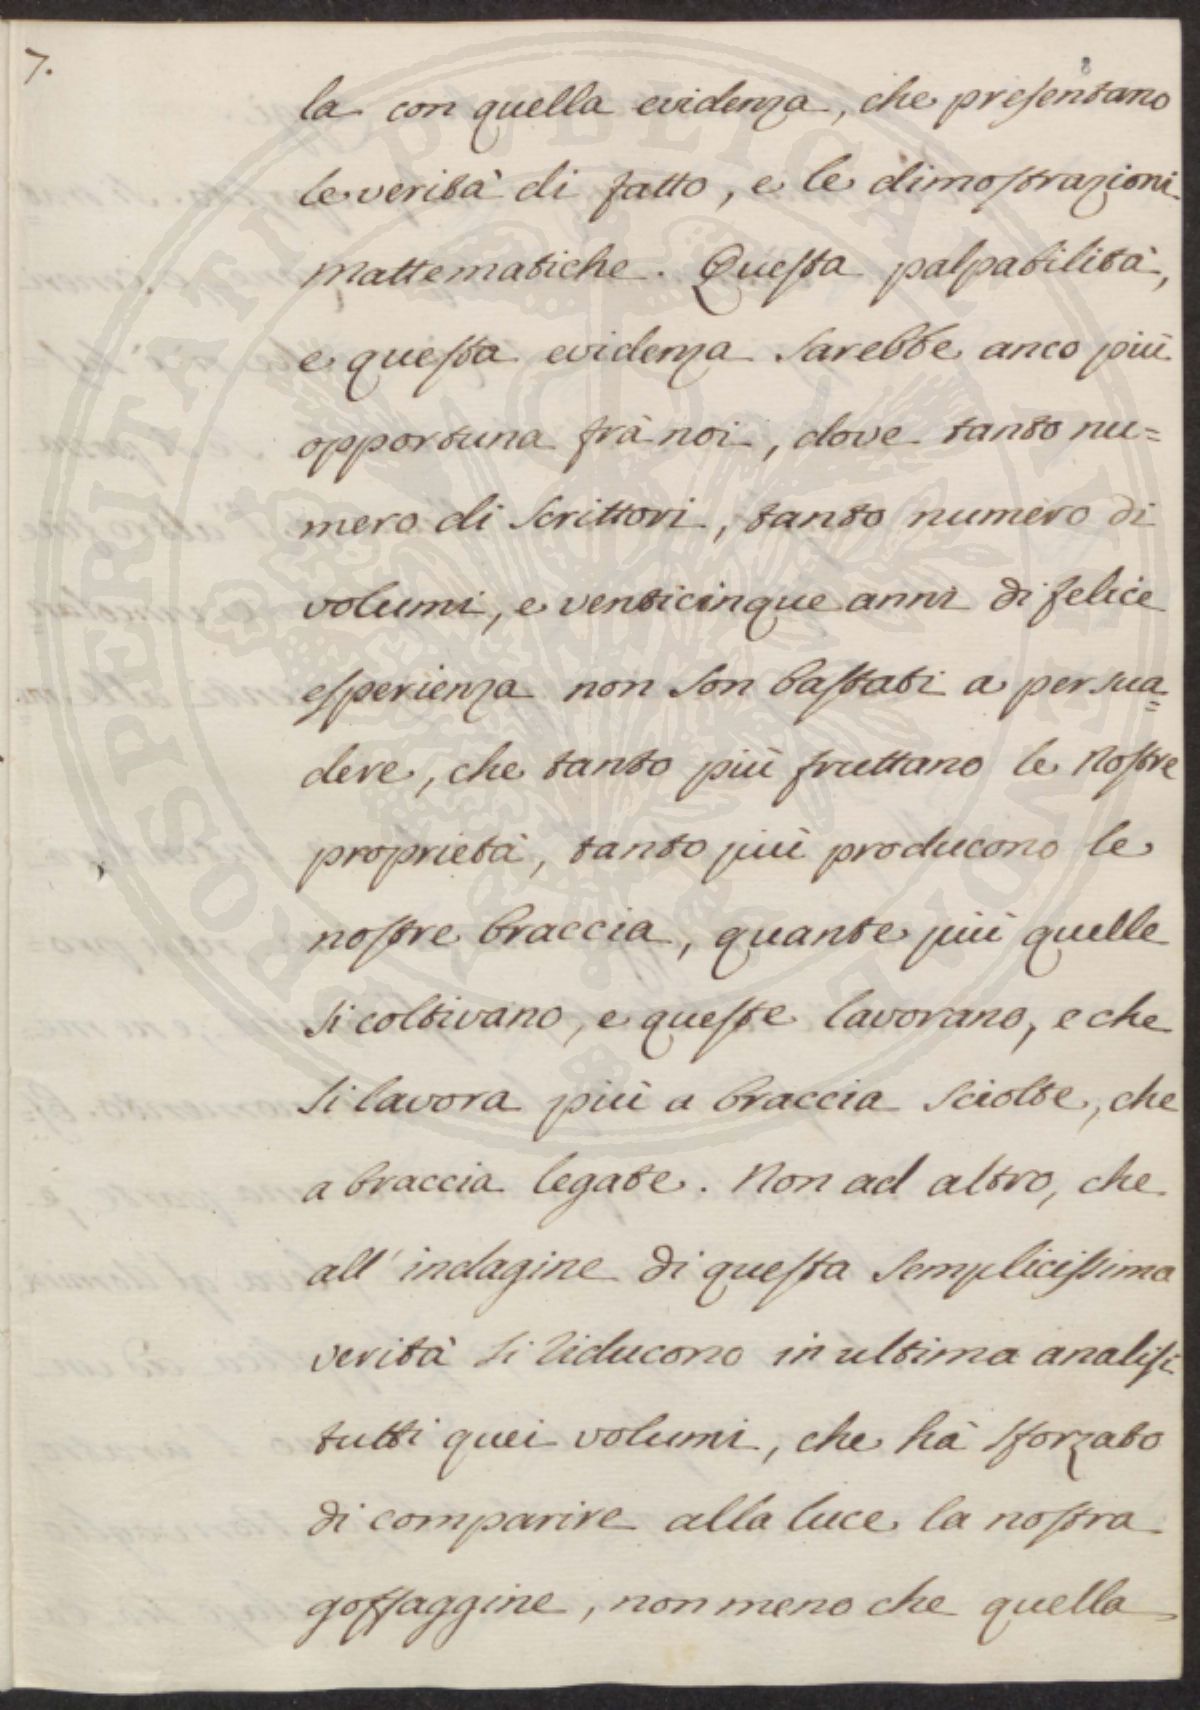 7.
8
la con quella evidenza, che presentano
le verità di fatto, e le dimostrazioni
mattematiche. Questa palpabilità,
e questa evidenza sarebbe anco più
opportuna frà noi, dove tanto nu=
mero di Scrittori, tanto numero di
volumi, e venticinque anni di felice
esperienza non son bastati a persua=
dere, che tanto più fruttano le nostre
proprietà, tanto più producono le
nostre braccia, quante più quelle
si coltivano, e queste lavorano, e che
si lavora più a braccia sciolte, che
a braccia legate. Non ad altro, che
all' indagine di questa semplicissima
verità si riducono in ultima analisi
tutti quei volumi, che hà sforzato
di comparire alla luce la nostra
goffaggine, non meno che quella
PROSPERITATI PUBLICAE AUGENDAE